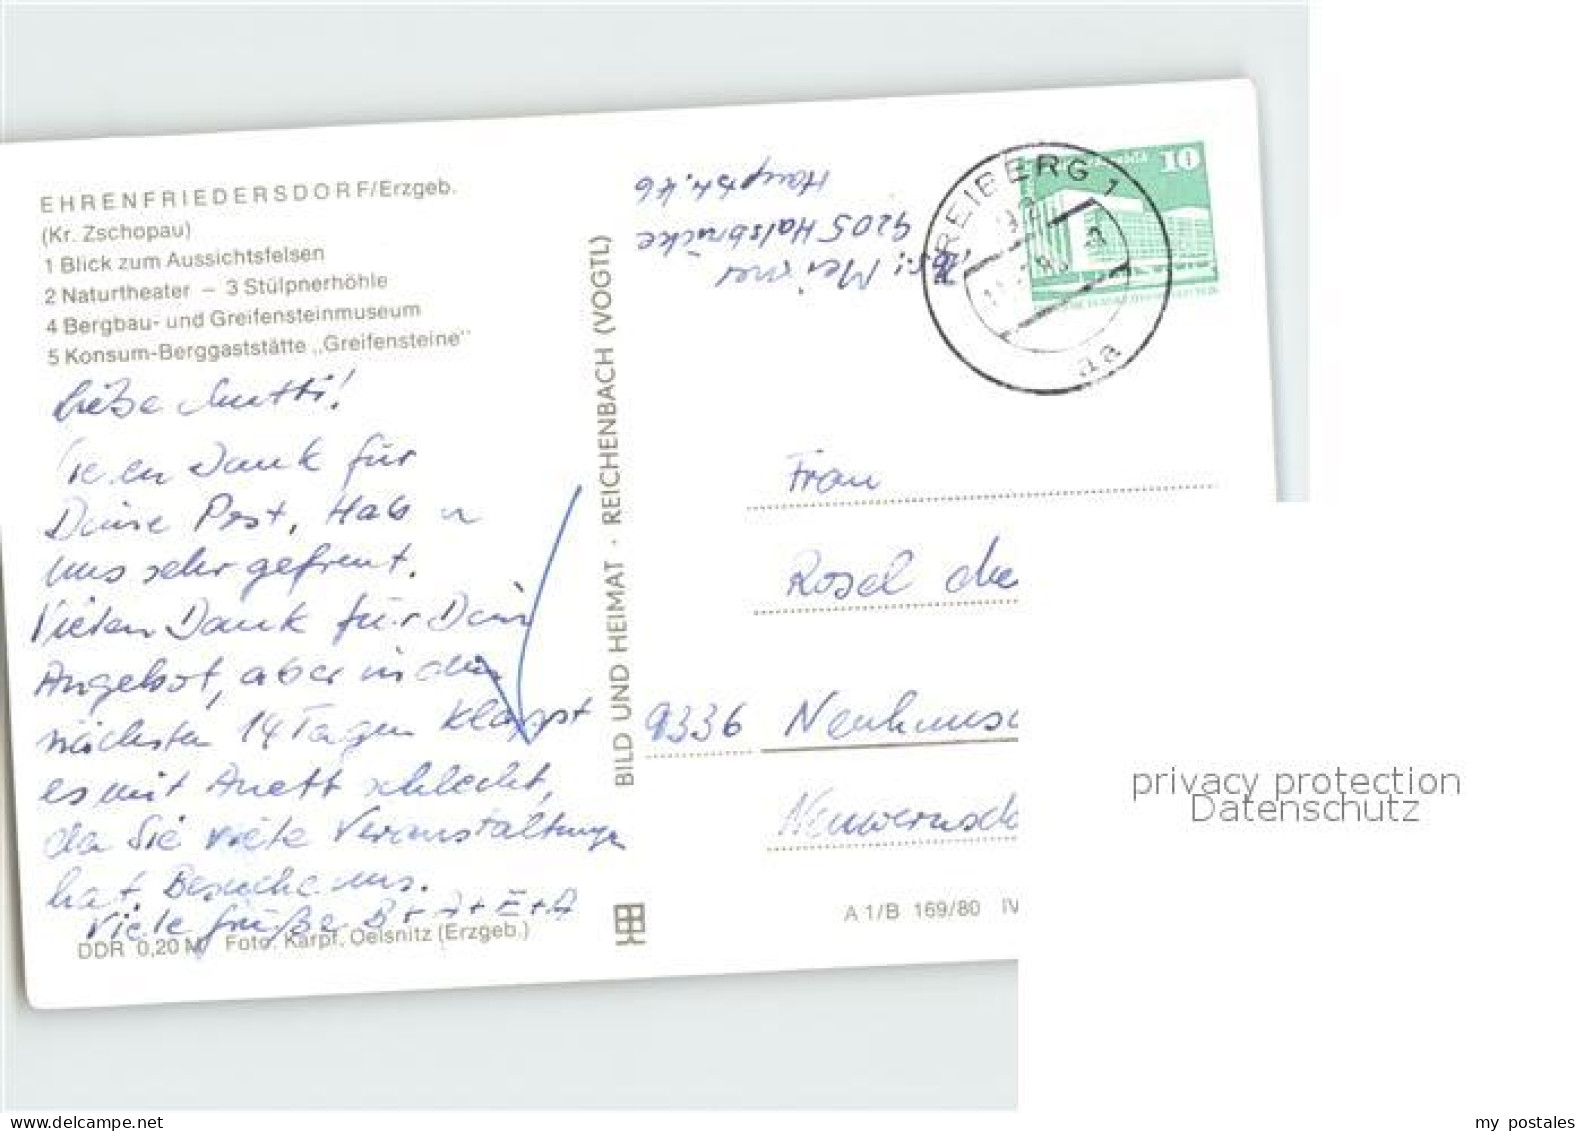 EHRENFRIEDERSDORF/Erzgeb.
(Kr. Zschopau)
1 Blick zum Aussichtsfelsen
2 Naturtheater – 3 Stülpnerhöhle
4 Bergbau- und Greifensteinmuseum
5 Konsum-Berggaststätte „Greifensteine"
Liebe Mutti!
Dank für
Deine Post. Hab
uns sehr gefreut.
Vielen Dank für Dein
Angebot, aber in den
nächsten 14 Tagen klappt
es mit Anett schlecht,
da Sie viele Veranstaltungen
hat. Besuche uns.
Viele Grüße B + A + E + A
DDR 0,20 M Foto: Karpf, Oelsnitz (Erzgeb.)
BILD UND HEIMAT · REICHENBACH (VOGTL)
9205 Halsbrücke
Hauptstr. 46
FREIBERG 1
aa
10
Frau
Rosel
9336 Neuhaus
Neuwernsd
A 1/B 169/80 IV
privacy protection
Datenschutz
my postales
www.delcampe.net